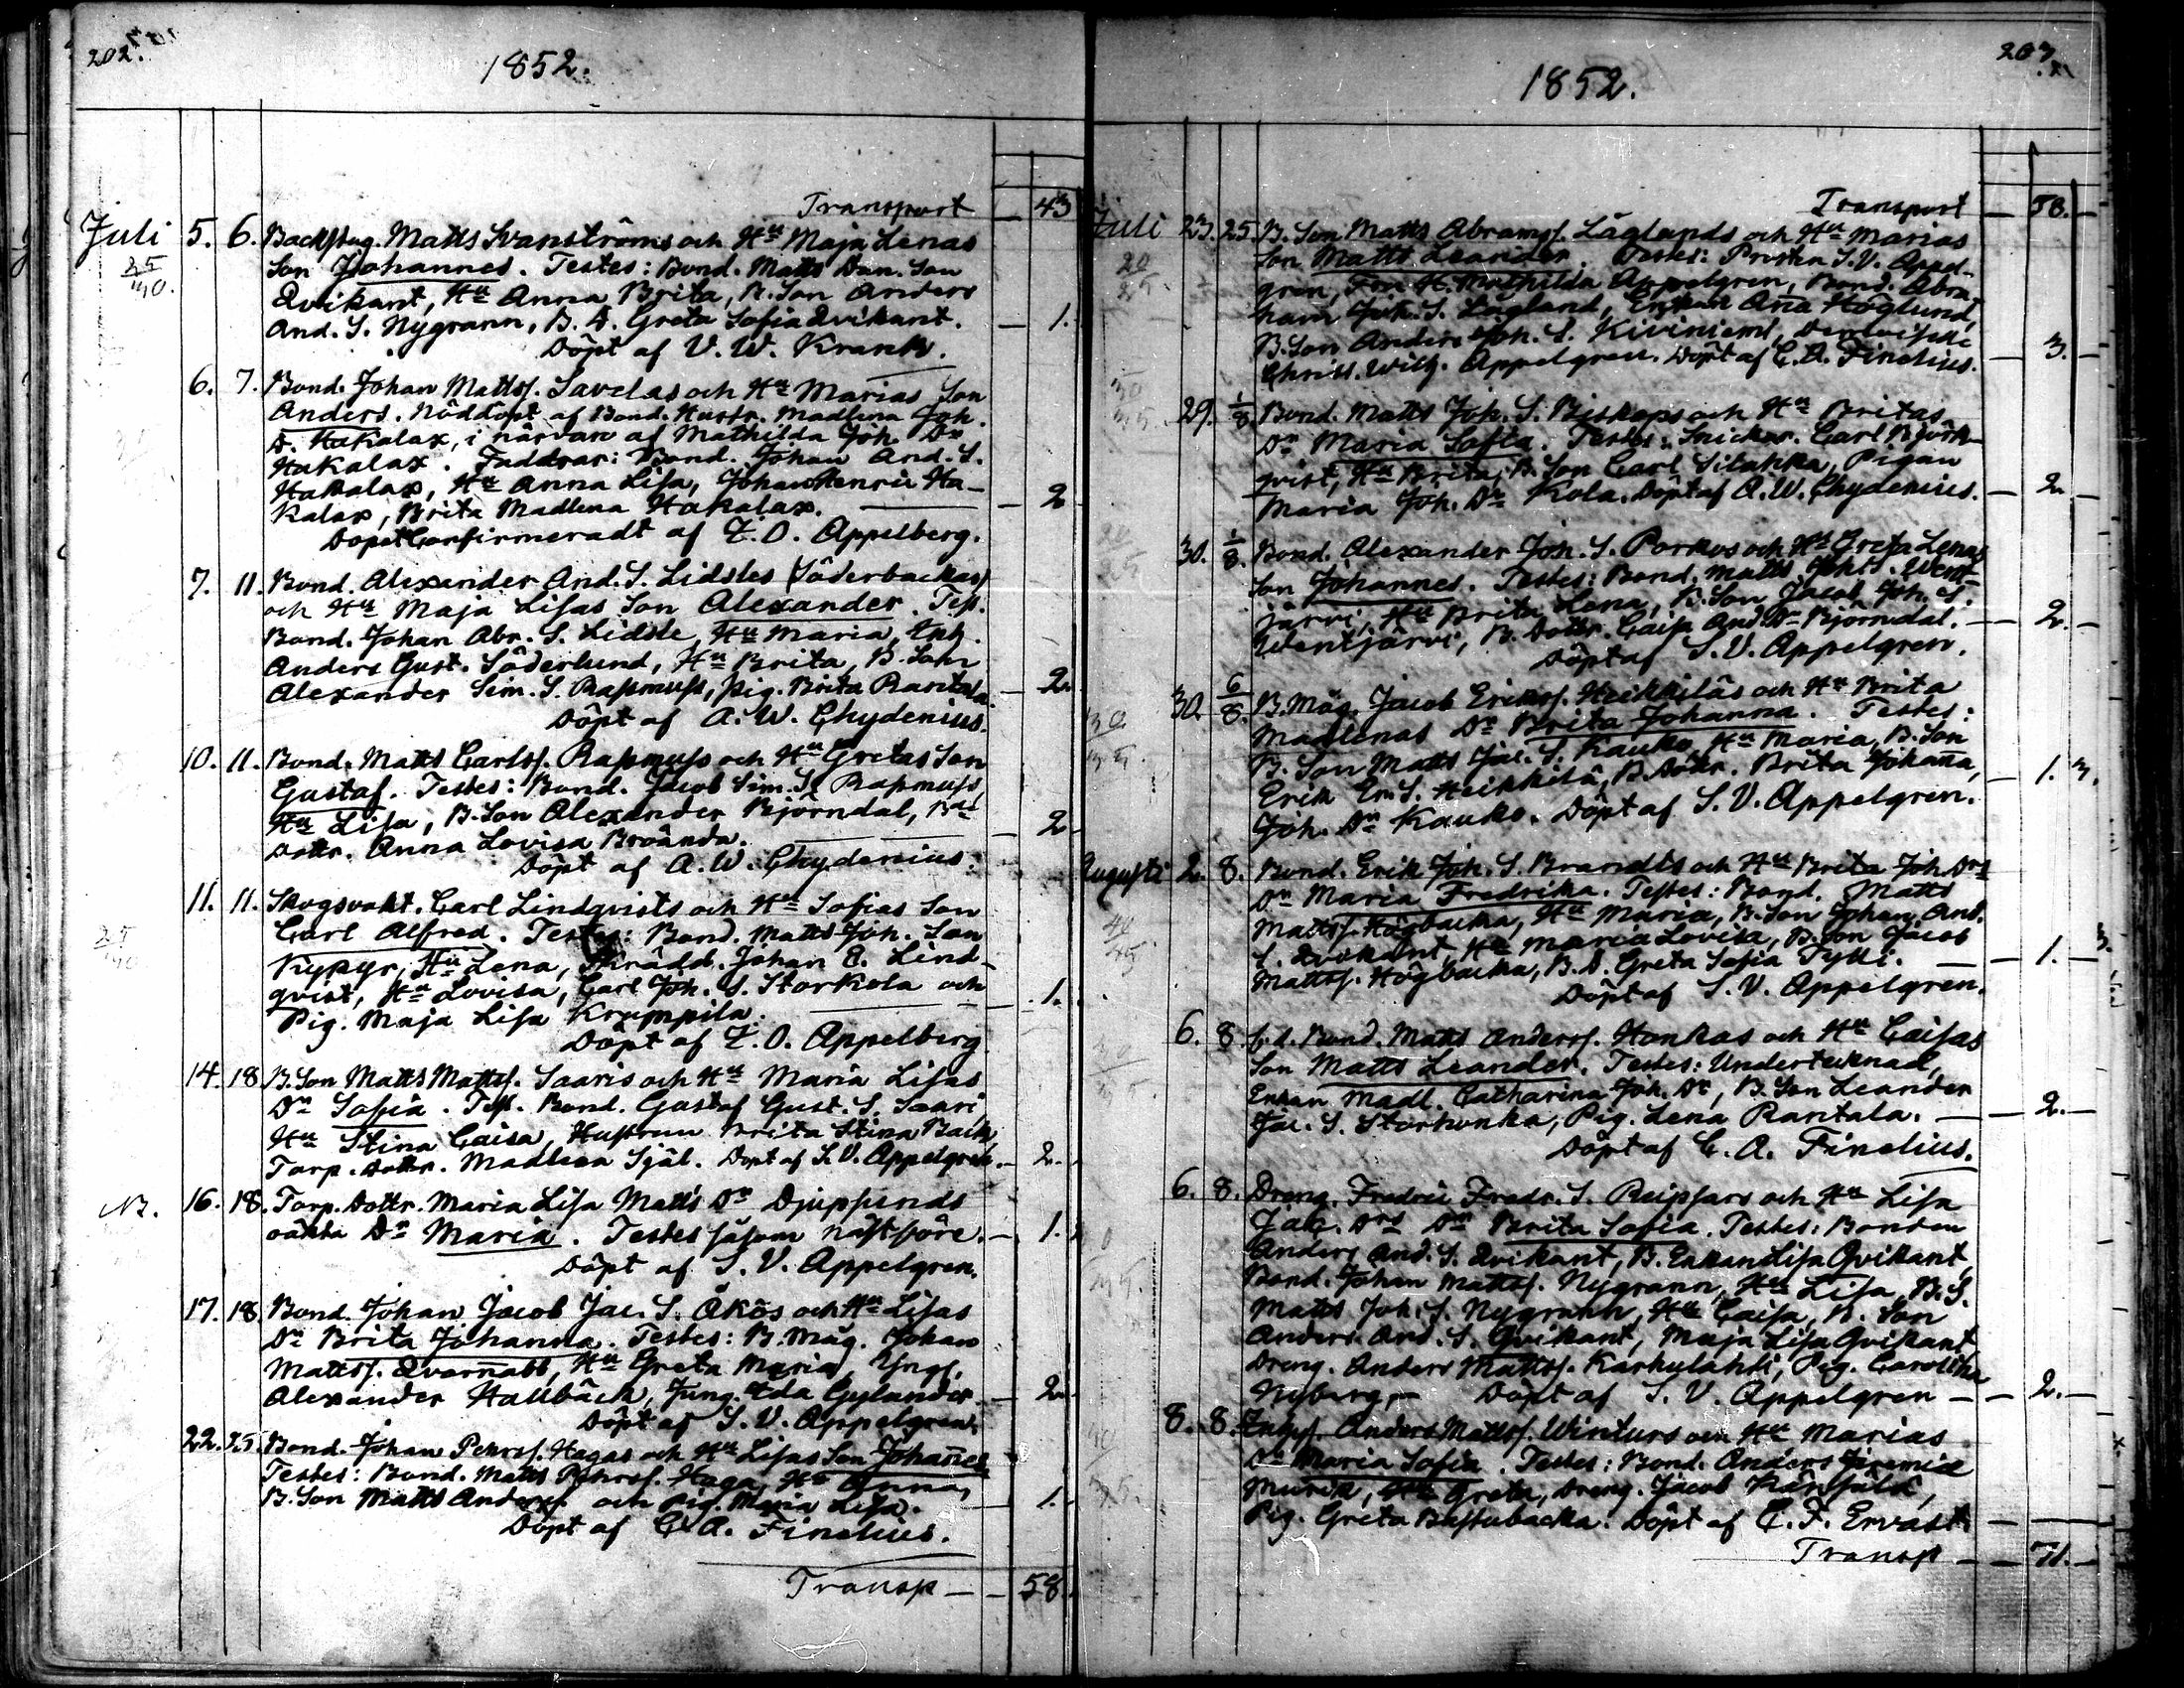 202.
1852.
Transport 43
Juli 5. 6. Backstug. Matts Svanströms och Hu Maja Lenas
25/30. Son Johannes. Testes: Bond. Matts Dan. Son
Qvikant, Hu Anna Brita, B. Son Anders
And. S. Nygrann, B. D. Greta Sofia Qvikant. — 1.
Döpt af V. W. Krank.
6. 7. Bond. Johan Mattss. Savelas och Hu Marias Son
Anders. Nöddöpt af Bond. Hustr. Madlena Joh.
D. Hakalax, i närvaro af Mathilda Joh. Dr
Hakalax. Faddrar: Bond. Johan And. S.
Hakalax, Hu Anna Lisa, Johan Henric Ha-
kalax, Brita Madlena Hakalax. — 2
Dopet Confirmeradt af Z. O. Appelberg.
7. 11. Bond. Alexander And. S. Lidstes (Söderbackas)
och Hu Maja Lisas Son Alexander. Test.
Bond. Johan Abr. S. Lidste, Hu Maria, Enk.
Anders Gust. Söderlund, Hu Brita, B. Son
Alexander Sim. S. Rasmuss, pig. Brita Rantala. — 2.
Döpt af A. W. Chydenius.
10. 11. Bond. Matts Carlss. Rasmuss och Hu Gretas Son
Gustaf. Testes: Bond. Jacob Sim. S. Rasmuss,
Hu Lisa, B. Son Alexander Björndal, B.
Dottr. Anna Lovisa Broända. — 2
Döpt af A. W. Chydenius.
11. 11. Skogsvakt. Carl Lindqvists och Hu Sofias Son
25/30 Carl Alfred. Testes: Bond. Matts Joh. Son
Kypyr, Hu Lena, Skrädd. Johan E. Lind-
qvist, Hu Lovisa, Carl Joh. S. Storkola och — 1.
Pig. Maja Lisa Krumpila.
Döpt af Z. O. Appelberg
14. 18 B. Son Matts Mattss. Saaris och Hu Maria Lisas
Dr Sofia. Test. Bond. Gustaf Gust. S. Saari,
Hu Stina Caisa, Hustrun Brita Stina Back,
Torp. Dottr. Madlena Själ. Döpt af S. V. Appelgren. — 2.
N. 16. 18. Torp. Dottr. Maria Lisa Matts Dr Djupsunds
oäkta Dr Maria. Testes såsom nästföre. — 1.
Döpt af S. V. Appelgren.
17. 18 Bond. Johan Jacob Jac. S. Åkös och Hu Lisas
Dr Brita Johanna. Testes: B. Måg. Johan
Mattss. Qvarnabb, Hu Greta Maria, Yngl.
Alexander Hallbäck, Jung. Ida Gylander — 2.
Döpt af S. V. Appelgren.
22. 25. Bond. Johan Pehrss. Hagas och Hu Lisas Son Johanes
Testes: Bond. Matts Pehrss. Haga, Hu Anna,
B. Son Matts Anderss. och Pig. Maria Lisa. — 1.
Döpt af C. A. Finelius.
Transp — 58.
203.
1852.
Transport — 58. —
Juli 23. 25. B. Son Matts Abramss. Låglands och Hu Marias
20/25. Son Matts Leander. Testes: Prosten S. V. Appel-
gren, Fru H. Mathilda Appelgren, Bond. Abra-
ham Joh. S. Lågland, Enkan Ana Höglund,
B. Son Anders Joh. S. Kiviniemi, Demoiselle
Christ. Wilh. Appelgren. Döpt af C. A. Finelius. — 3. —
29. 1/8. Bond. Matts Joh. S. Biskops och Hu Britas
Dr Maria Sofia. Testes: Snickar. Carl Björk-
qvist, Hu Brita, B. Son Carl Silakka, Pigan
Maria Joh. Dr Kola. Döpt af A. W. Chydenius. — 2. —
30. 1/8. Bond. Alexander Joh. S. Porkos och Hu Greta Lenas
Son Johannes. Testes: Bond. Matts Went-
järvi, Hu Brita Lena, B. Son Jacob Joh. S.
Wentjärvi, B. Dottr. Caisa And. Dr Björndal. — 2. —
Döpt af S. V. Appelgren.
30. 6/8. B. Måg. Jacob Erikss. Heikkiläs och Hu Brita
Madlenas Dr Brita Johanna. Testes:
B. Son Matts Jac. S. Kauko, Hu Maria, B. Son
Erik Er. S. Heikkilä, B. Dottr. Brita Johana, — 1. 3.
Joh. Dr Kauko. Döpt af S. V. Appelgren.
Augusti 2. 8. Bond. Erik Joh. S. Brandts och Hu Brita Joh. Drs
Dr Maria Fredrika. Testes: Bond. Matts
Mattss. Högbacka, Hu Maria, B. Son Johan And.
S. Qvikant, Hu Maria Lovisa, B. Son Jacob
Mattss. Högbacka, B. D. Greta Sofia Tylli. — 1. — 3.
Döpt af S. V. Appelgren.
6. 8. f. d. Bond. Matts Anderss. Honkas och Hu Caisas
Son Matts Leander. Testes: Undertecknad,
Enkan Madl. Catharina Joh. Dr, B. Son Leander
Jac. S. Storhonka, Pig. Lena Rantala. — 2. —
Döpt af C. A. Finelius.
6. 8. Dreng. Fredric Fredr. S. Reipsars och Hu Lisa
Jac. Drs Dr Brita Sofia. Testes: Bonden
Anders And. S. Qvikant, B. Enkan Lisa Qvikant,
Bond. Johan Mattss. Nygrann, Hu Lisa, B. S.
Matts Joh. S. Nygrann, Hu Caisa, B. Son
Anders And. S. Qvikant, Maja Lisa Qvikant,
Dreng. Anders Mattss. Karhulahti, Pig. Carolina
Nyberg. — Döpt af S. V. Appelgren — 2. —
8. 8. Anders Mattss. Winturs och Hu Marias
Dr Maria Sofia. Testes: Bond. Anders Jeremia
Murik, Hu Greta, Dreng. Jacob
Pig. Greta Bastubacka. Döpt af C. F. Ervast. —
Transp — 71. —